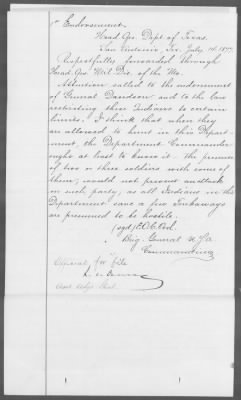 1st Endorsement.
Head Qrs. Dept of Texas.
San Antonio, Tex. July 14. 1877.
Respectfully forwarded through
Head. Qrs. Mil. Div. of the Mo.
Attention called to the endorsement
of General Davidson and to the law
restricting these Indians to certain
limits. I think that when they
are allowed to hunt in this Depart-
ment, the Department Commander
ought at least to know it. The presence
of two or three soldiers with some of
them, would not prevent an attack
on such party, as all Indians in the
Department save a few Tonkaways
are presumed to be hostile.
(sgd) E.O.C. Ord.
Brig. General U.S.A
Commanding
Official for file
Asst Adjt. Genl.